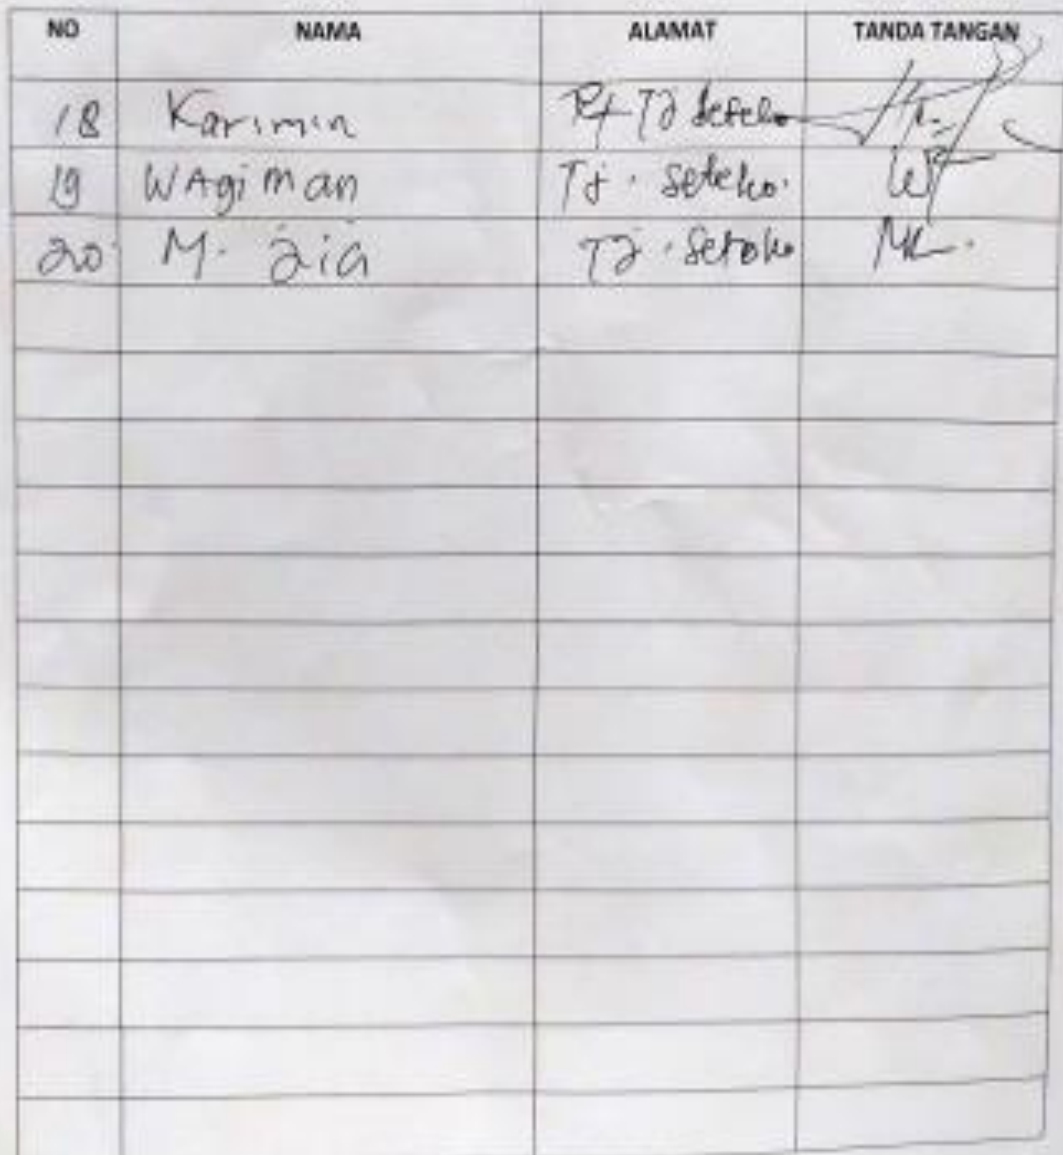 NO NAMA ALAMAT TANDA TANGAN
18 Karimin Rt Tj Seteko
19 WAgiman Tj. Seteko.
20 M. Zia Tj. Setoko